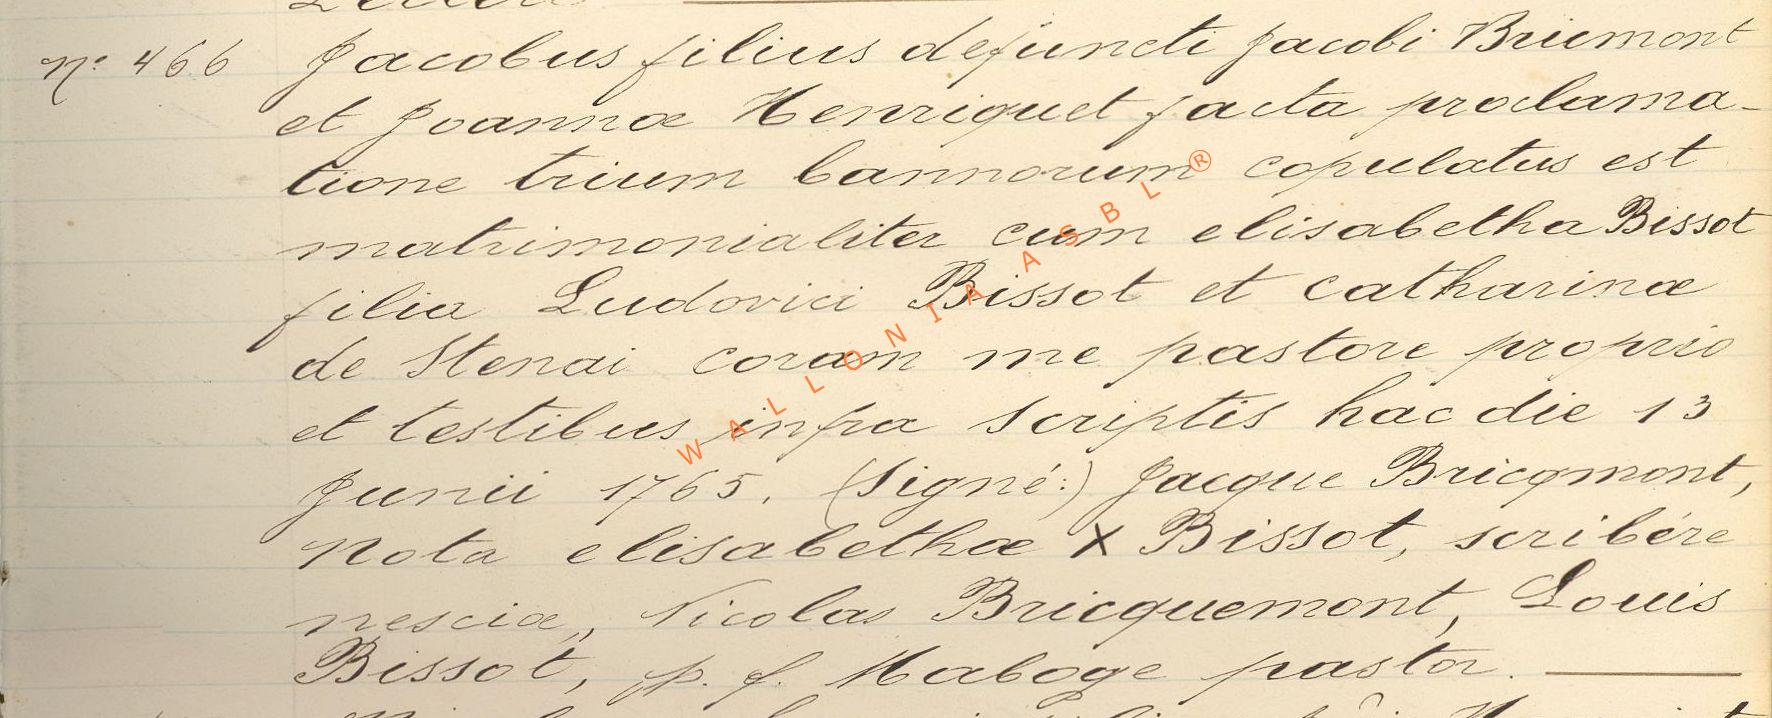 nº 466 Jacobus filius defuncti Jacobi Briemont
et Joannæ Henriquet facta proclama-
tione trium bannorum copulatus est
matrimonialiter cum elisabetha Bissot
filia Ludovici Bissot et catharinæ
de Stenai coram me pastore proprio
et testibus infra scriptis hac die 13
Junii 1765. (Signé:) Jacque Bricqmont,
nota elisabethæ X Bissot, scribére
nesciæ, Nicolas Bricquemont, Louis
Bissot, p. f. Maboge pastor.
WALLONIA ASBL ®